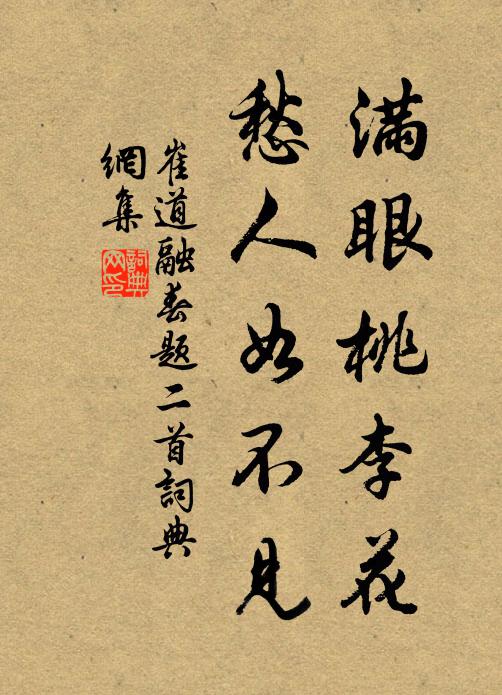 滿眼桃李花
愁人如不見
崔道融春題二首詞典
網集
詞典
网印